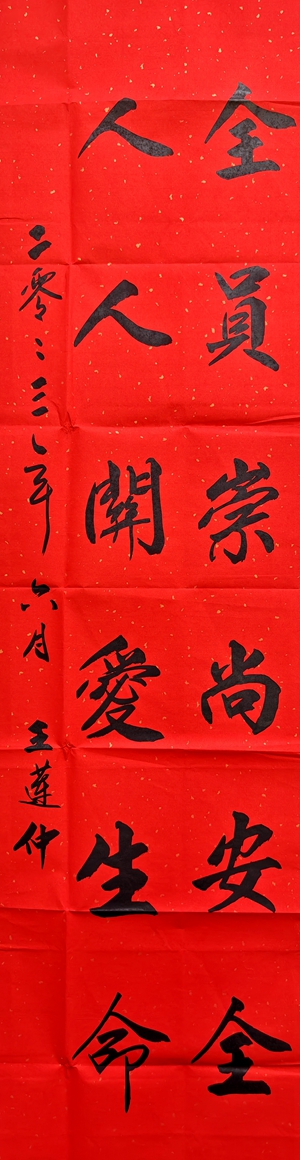 全員崇尚安全
人人關愛生命
二零二三年六月 王蓮仲